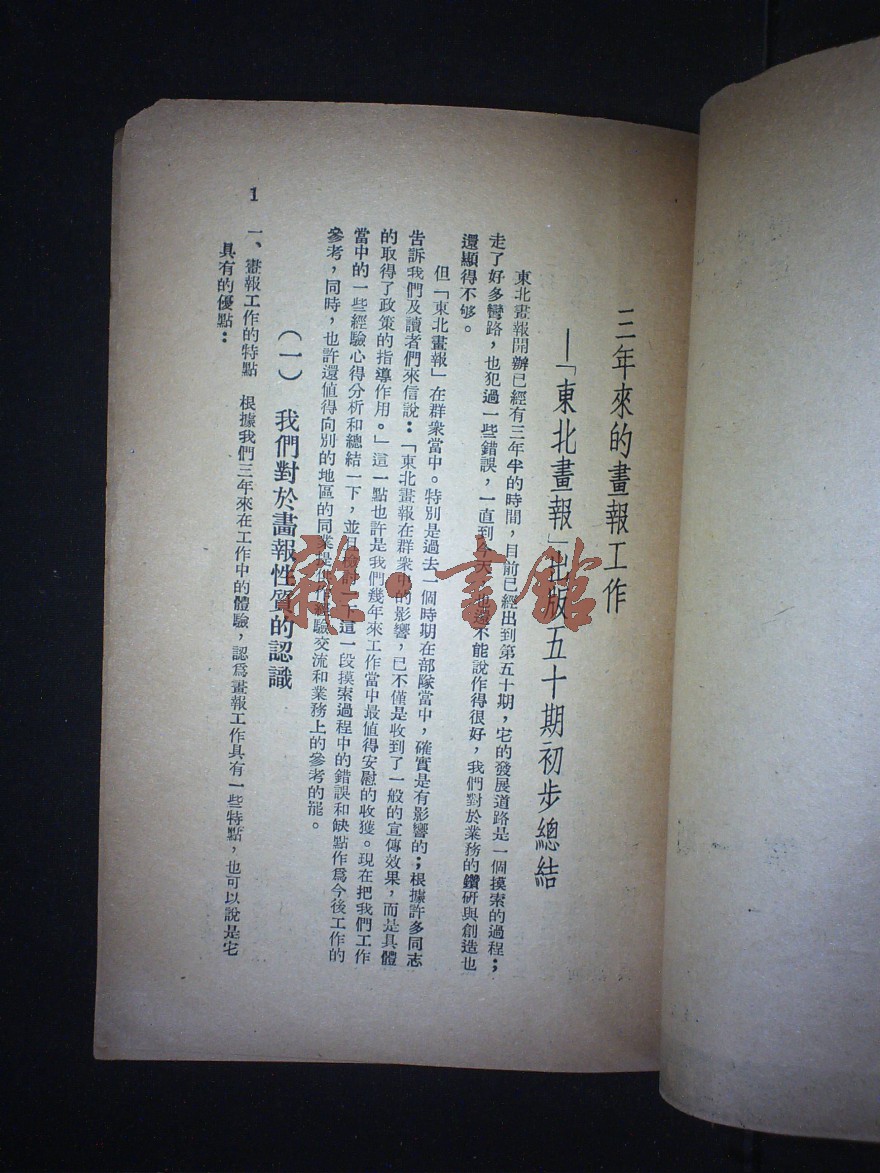 三年來的畫報工作
—「東北畫報」出版五十期初步總結
東北畫報開辦已經有三年半的時間，目前已經出到第五十期，它的發展道路是一個摸索的過程；
走了好多彎路，也犯過一些錯誤，一直到今天，也還不能說作得很好，我們對於業務的鑽研與創造也
還顯得不够。
但「東北畫報」在群衆當中。特別是過去一個時期在部隊當中，確實是有影響的；根據許多同志
告訴我們及讀者們來信說：「東北畫報在群衆中的影響，已不僅是收到了一般的宣傳效果，而是具體
的取得了政策的指導作用。」這一點也許是我們幾年來工作當中最値得安慰的收獲。現在把我們工作
當中的一些經驗心得分析和總結一下，並且檢討一下這一段摸索過程中的錯誤和缺點作爲今後工作的
參考，同時，也許還値得向別的地區的同業提供作經驗交流和業務上的參考的罷。
（一） 我們對於畫報性質的認識
一、畫報工作的特點 根據我們三年來在工作中的體驗，認爲畫報工作具有一些特點，也可以說是它
具有的優點：
1
雜·書館